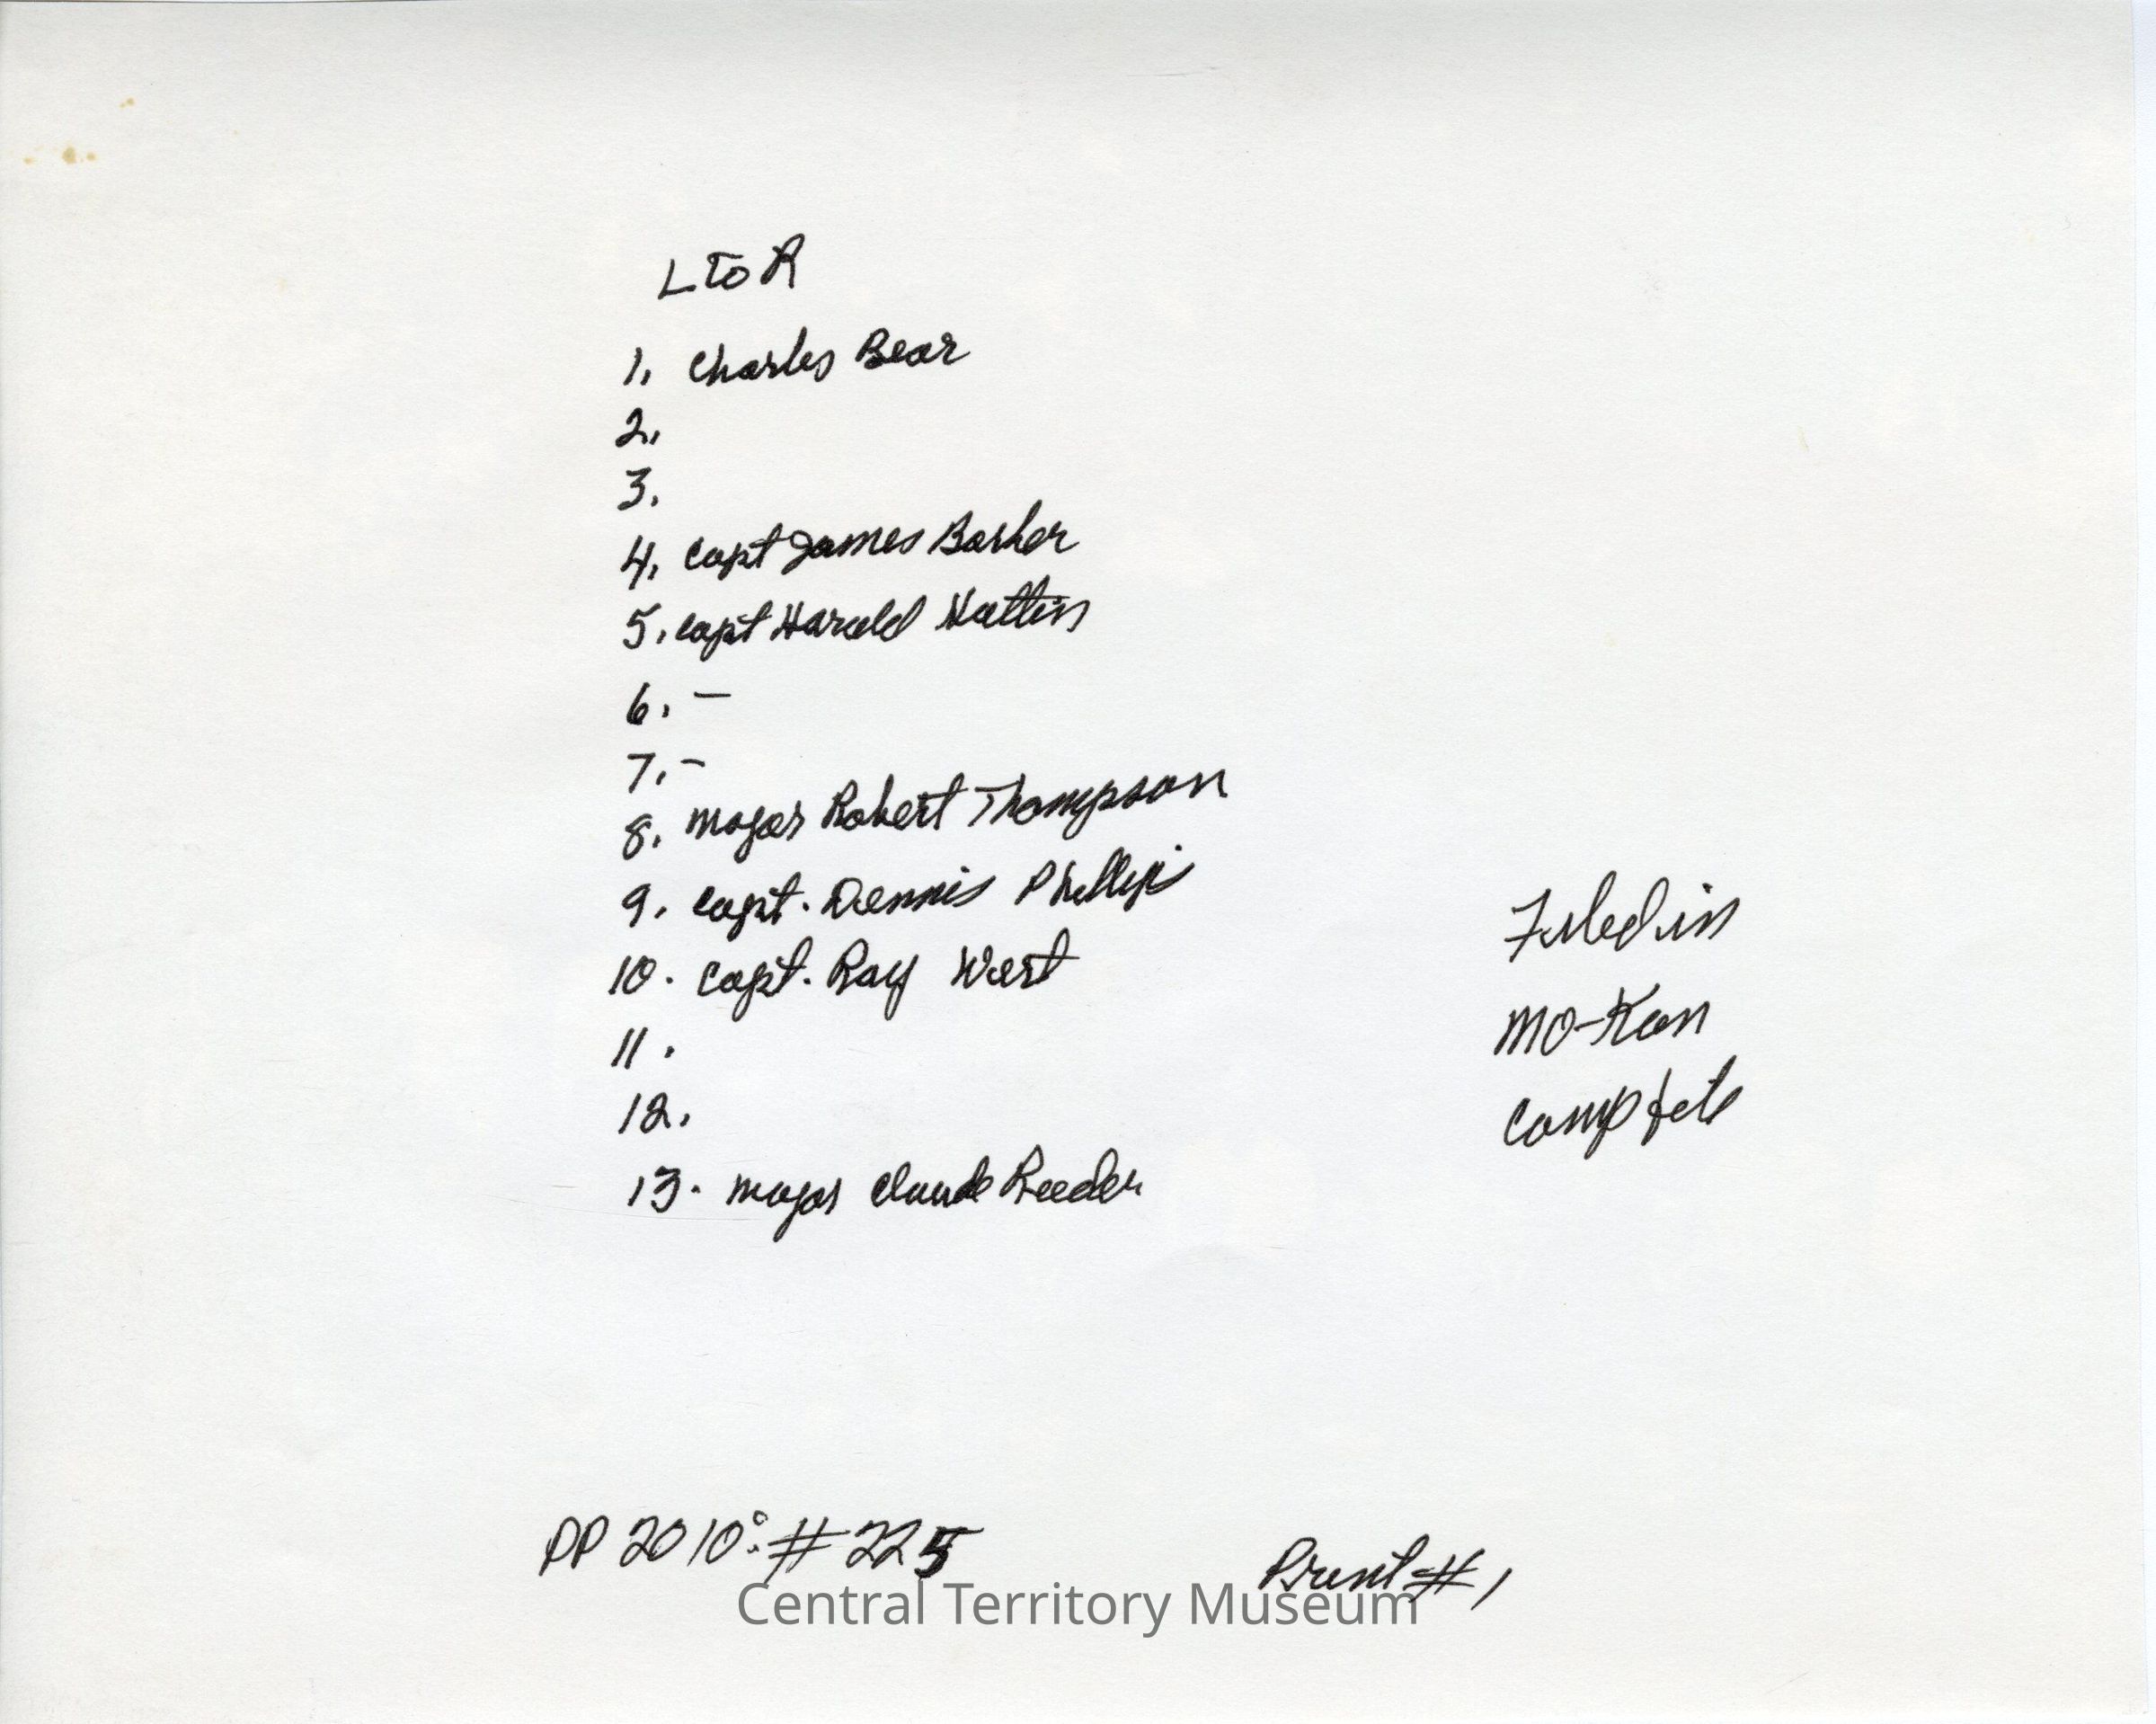 L to R
1. Charles Bear
2.
3.
4. Capt James Barker
5. Capt Harold
6. -
7. -
8. Major Robert Thompson
9. Capt. Dennis Phillips
10. Capt. Ray West
11.
12.
13. Major Claude Reeder
Filed in
MO-Kan
Camp file
PP 2010: # 225
Print # 1
Central Territory Museum